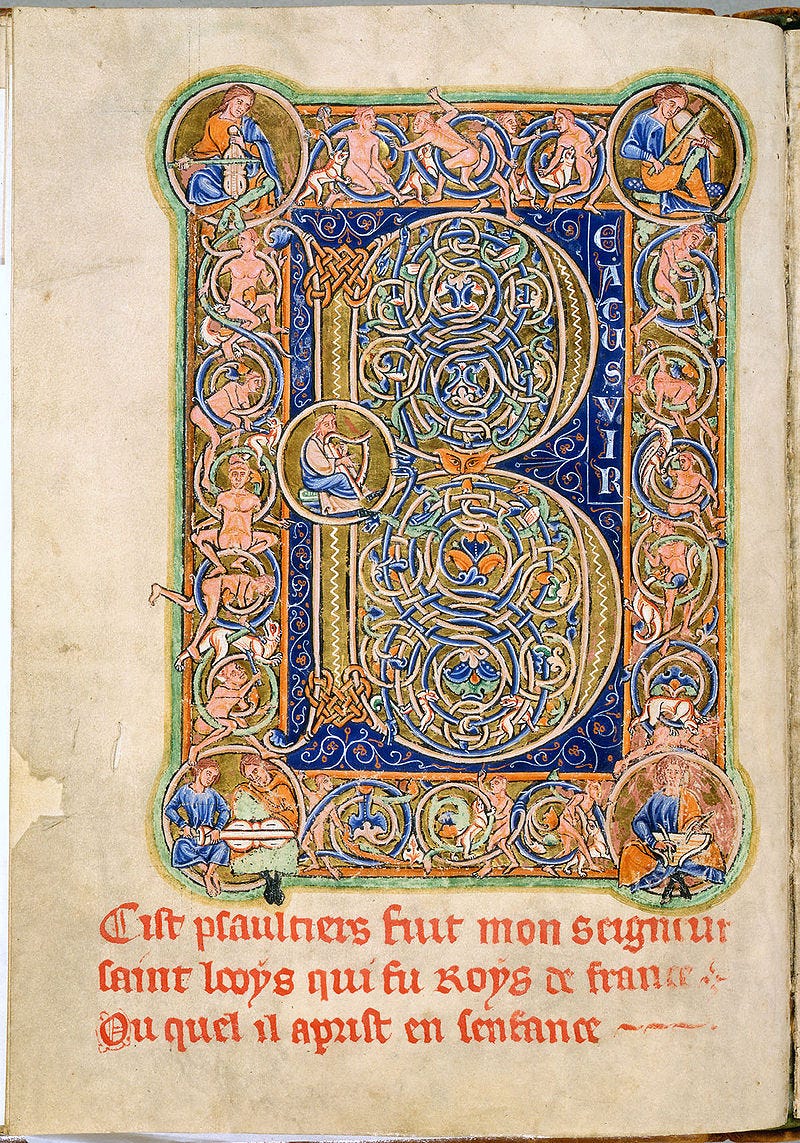 BEATUS VIR
Cist psaultiers fuit mon seigneur
saint looys qui fu Roys de france
Ou quel il aprist en senfance